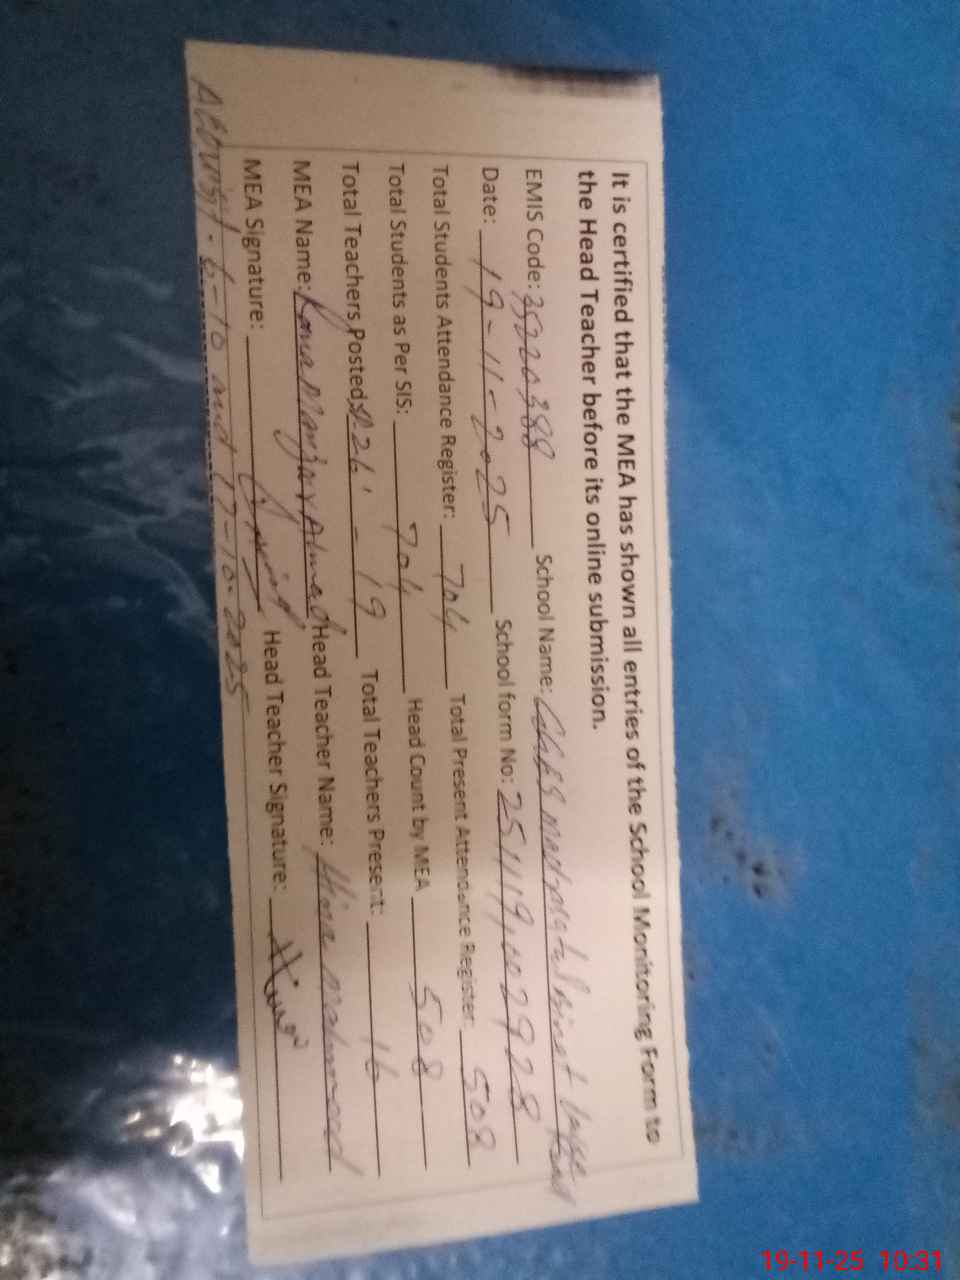 It is certified that the MEA has shown all entries of the School Monitoring Form to
the Head Teacher before its online submission.
EMIS Code: 35220388 School Name:
Date: 19-11-2025 School form No: 251119,002928
Total Students Attendance Register: 704 Total Present Attendance Register: 508
Total Students as Per SIS: 704 Head Count by MEA 508
Total Teachers Posted 26 - 19 Total Teachers Present: 16
MEA Name: Rana Ahmad Head Teacher Name: Hina Mahmood
MEA Signature: Head Teacher Signature: Hina
6-10 and 17-10-2025
19-11-25 10:31